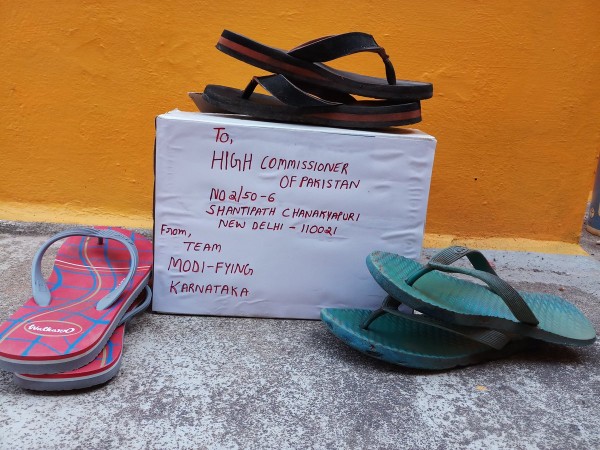 To,
HIGH COMMISSIONER
OF PAKISTAN
NO 2/50-G
SHANTIPATH CHANAKYAPURI
NEW DELHI - 110021
From,
TEAM
MODI-FYING
KARNATAKA
Walkaroo